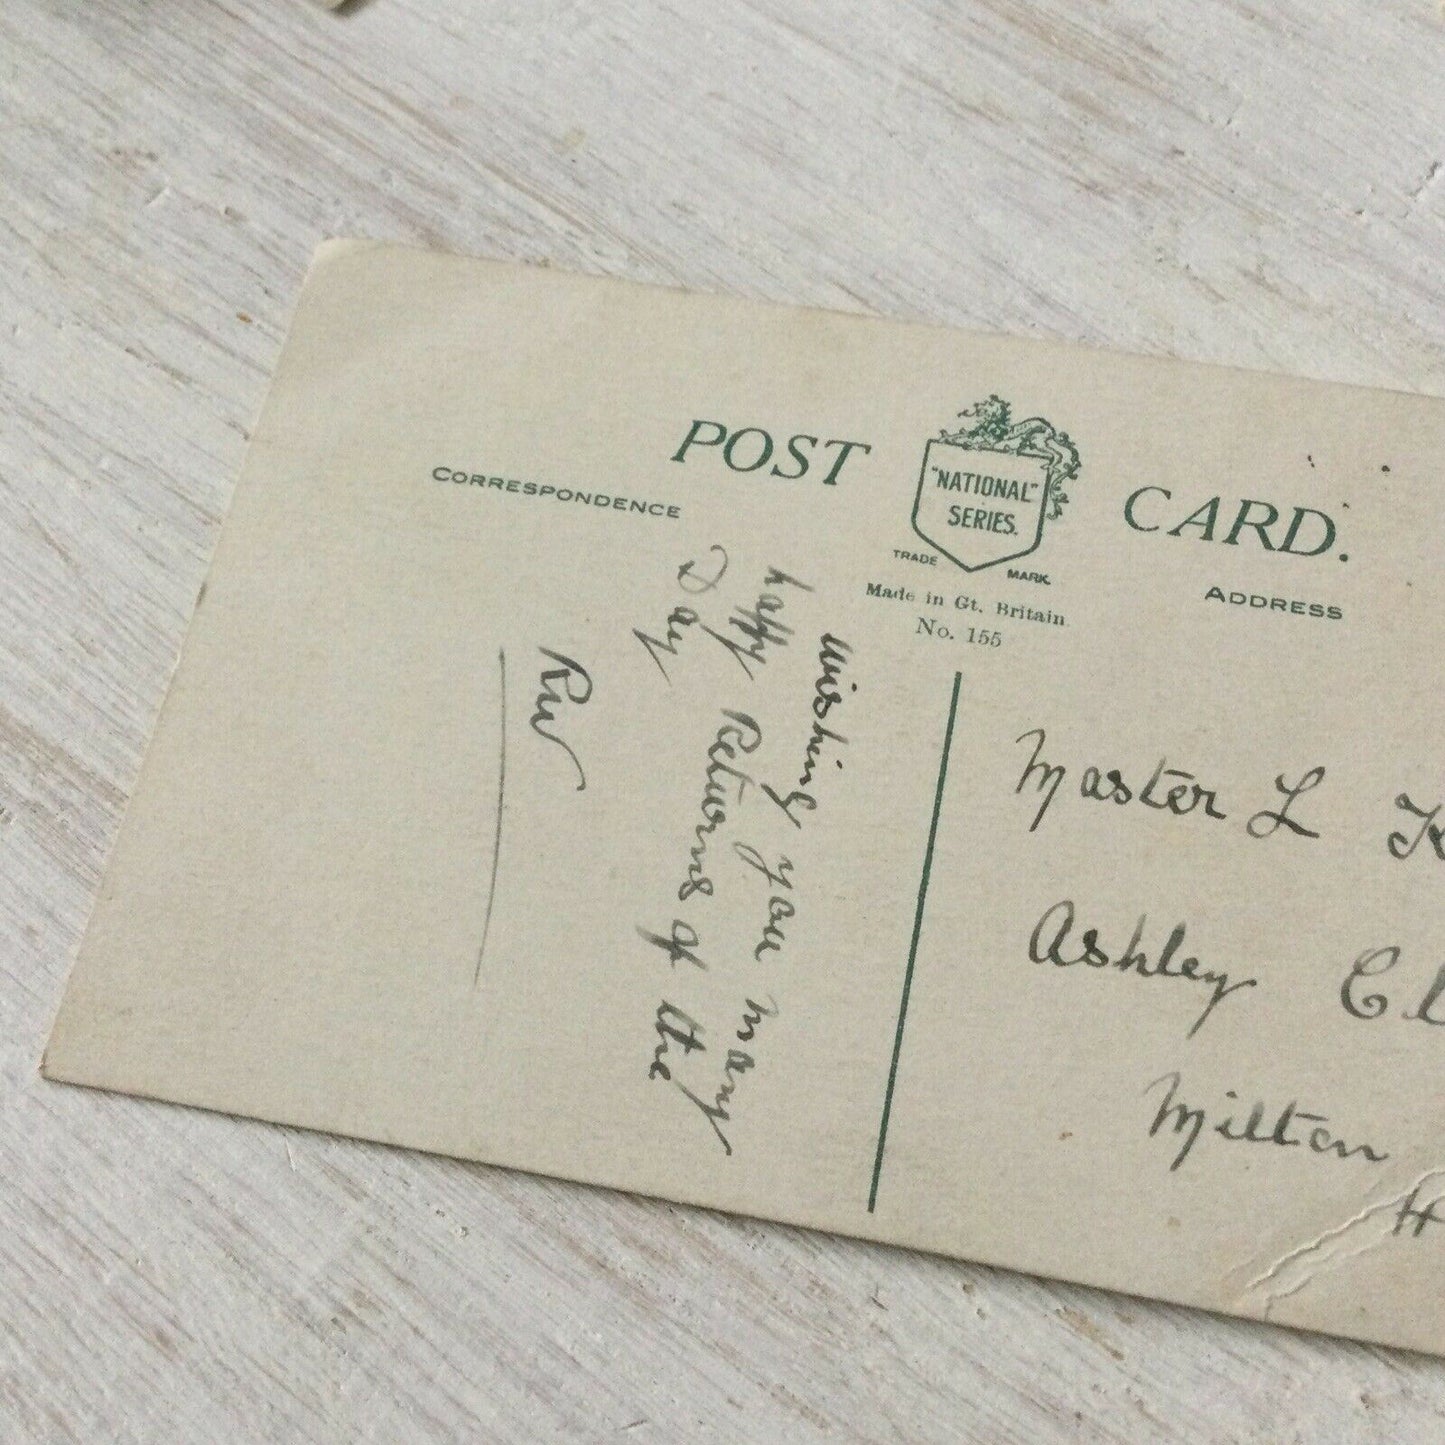 POST CARD.
"NATIONAL"
SERIES.
TRADE MARK
Made in Gt. Britain
No. 155
CORRESPONDENCE
ADDRESS
Wishing you many
happy Returns of the
Day
RW
Master L
Ashley
Milton